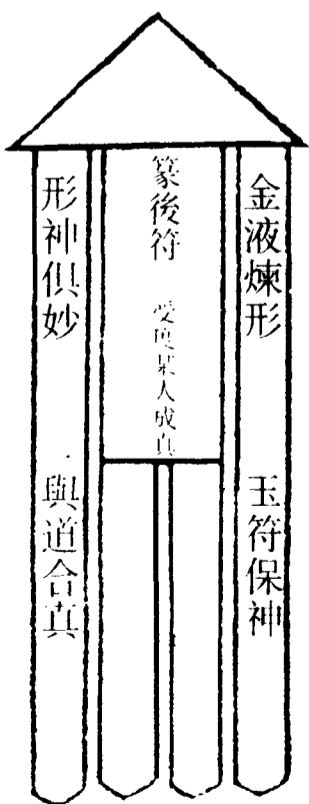 金液煉形 玉符保神
篆後符 受度某人成真
形神俱妙 與道合真